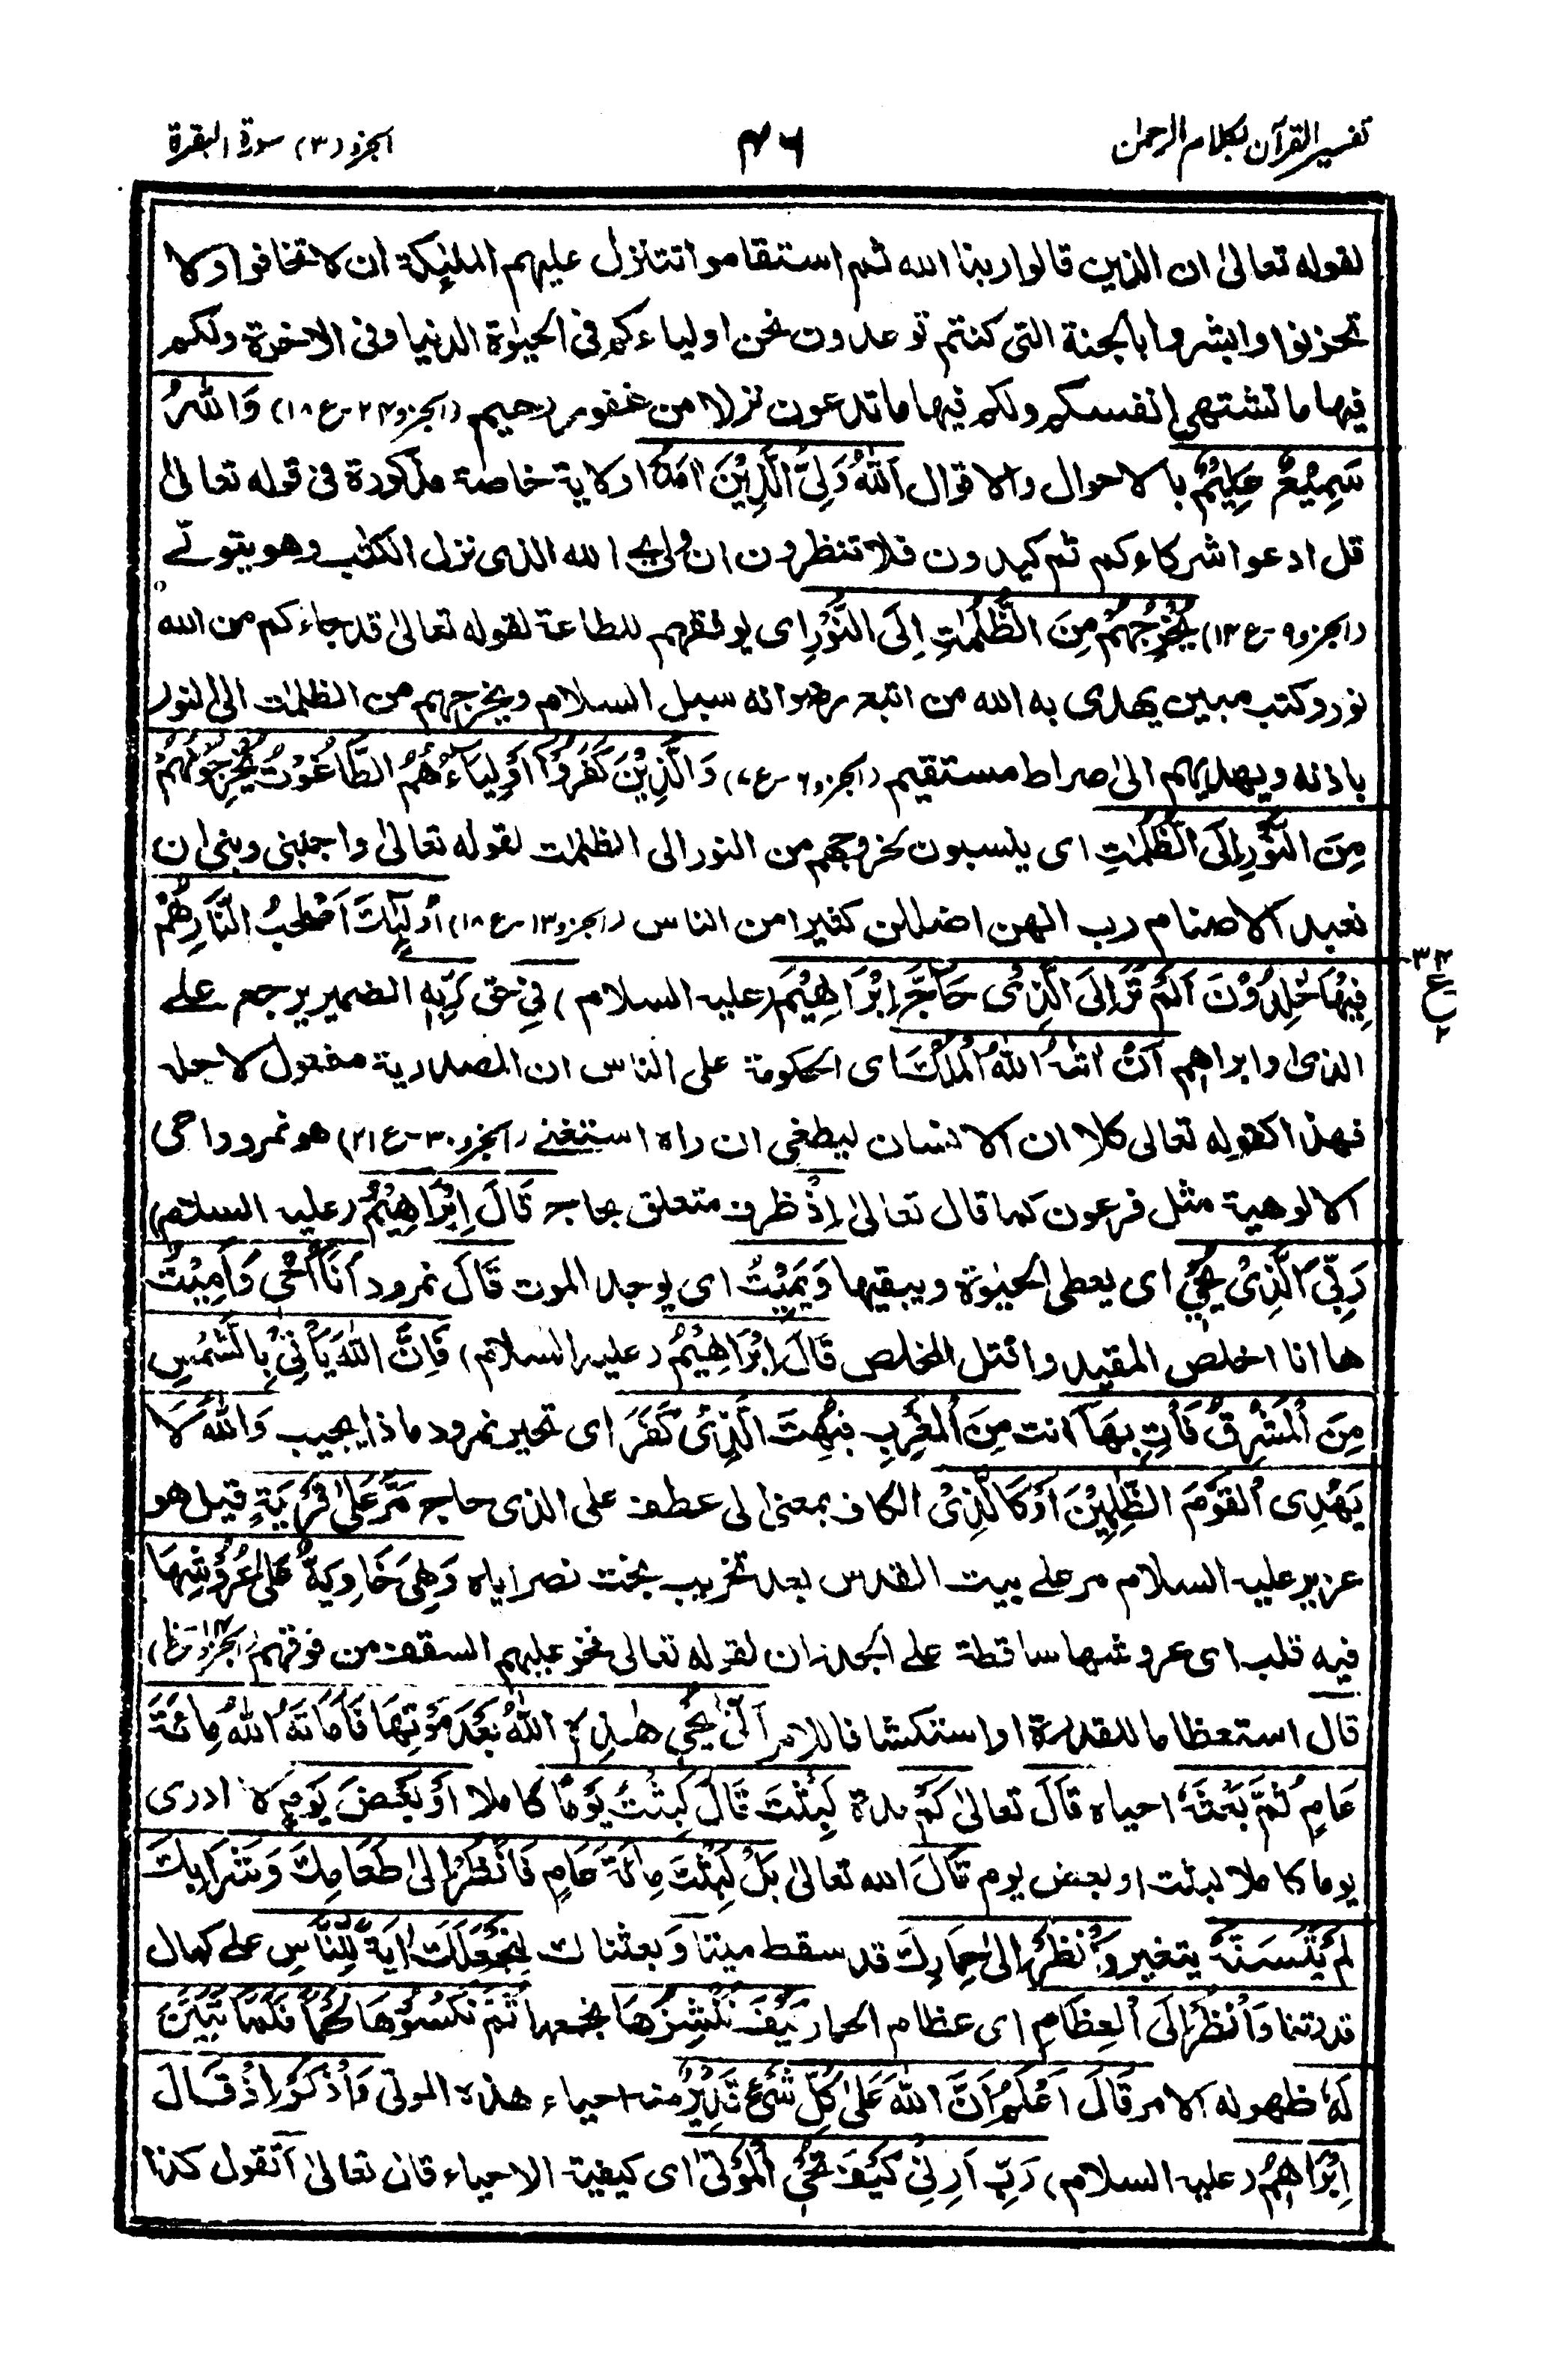 تفسير القرآن بكلام الرحمٰن
۴۶
الجزو (۳) سورة البقرة
لقوله تعالىٰ ان الذين قالوا ربنا الله ثم استقاموا تتنزل عليهم الملٰئكة ان لا تخافوا ولا
تحزنوا وابشروا بالجنة التى كنتم توعدون نحن اولياءكم فى الحيٰوة الدنيا وفى الاخرة ولكم
فيها ما تشتهى انفسكم ولكم فيها ما تدعون نزلا من غفور رحيم (الجزو ۲۴-ع ۱۸) وَاللّٰهُ
سَمِيْعٌ عَلِيْمٌ بالاحوال والاقوال اَللّٰهُ وَلِىُّ الَّذِيْنَ اٰمَنُوْا ولاية خاصة مذكورة فى قوله تعالىٰ
قل ادعوا شركاءكم ثم كيدون فلا تنظرون ان ولىّ الله الذى نزل الكتٰب وهو يتولى
(الجزو ۹-ع ۱۴) يُخْرِجُهُمْ مِنَ الظُّلُمٰتِ اِلَى النُّوْرِ اى يوفقهم للطاعة لقوله تعالىٰ قد جاءكم من الله
نور وكتب مبين يهدى به الله من اتبع رضوانه سبل السلام ويخرجهم من الظلمٰت الى النور
باذنه ويهديهم الىٰ صراط مستقيم (الجزو ۶-ع ۷) وَالَّذِيْنَ كَفَرُوْا اَوْلِيَاءُهُمُ الطَّاغُوْتُ يُخْرِجُوْنَهُمْ
مِنَ النُّوْرِ اِلَى الظُّلُمٰتِ اى يسببون لخروجهم من النور الى الظلمٰت لقوله تعالىٰ واجنبنى وبنى ان
نعبد الاصنام رب انهن اضللن كثيرا من الناس (الجزو ۱۳-ع ۱۸) اُولٰٓئِكَ اَصْحٰبُ النَّارِ هُمْ
فِيْهَا خٰلِدُوْنَ اَلَمْ تَرَ اِلَى الَّذِىْ حَاجَّ اِبْرَاهِيْمَ (عليه السلام) فِىْ حق رَبِّهٖ الضمير يرجع على
۳۴
ع
۲
الذى وابراهيم اَنْ اٰتٰهُ اللّٰهُ الْمُلْكَ اى الحكومة على الناس ان المصدرية مفعول لاجله
فهذا كقوله تعالى كلا ان الانسان ليطغى ان راٰه استغنى (الجزو ۳۰-ع ۲۱) هو نمرود ادعى
الالوهية مثل فرعون كما قال تعالىٰ اِذْ ظرف متعلق بحاج قَالَ اِبْرَاهِيْمُ (عليه السلام)
رَبِّىَ الَّذِىْ يُحْيِ اى يعطى الحيٰوة ويبقيها وَيُمِيْتُ اى يوجد الموت قَالَ نمرود اَنَا اُحْيِ وَاُمِيْتُ
ها انا اخلص المقيد واقتل المخلص قَالَ اِبْرَاهِيْمُ (عليه السلام) فَاِنَّ اللّٰهَ يَاْتِىْ بِالشَّمْسِ
مِنَ الْمَشْرِقِ فَأْتِ بِهَا انت مِنَ الْمَغْرِبِ فَبُهِتَ الَّذِىْ كَفَرَ اى تحير نمرود ماذا يجيب وَاللّٰهُ لَا
يَهْدِى الْقَوْمَ الظّٰلِمِيْنَ اَوْ كَالَّذِىْ الكاف بمعنى الى عطف على الذى حاج مَرَّ عَلٰى قَرْيَةٍ قيل هو
عزير عليه السلام مر على بيت المقدس بعد تخريب بخت نصر اياه وَهِىَ خَاوِيَةٌ عَلٰى عُرُوْشِهَا
فيه قلب اى عروشها ساقطة على الجدران لقوله تعالى فخر عليهم السقف من فوقهم
قال استعظاما للقدرة او استكشافا للامر اَنّٰى يُحْيِ هٰذِهِ اللّٰهُ بَعْدَ مَوْتِهَا فَاَمَاتَهُ اللّٰهُ مِائَةَ
عَامٍ ثُمَّ بَعَثَهٗ احياه قَالَ تعالىٰ كَمْ مدة لَبِثْتَ قَالَ لَبِثْتُ يَوْمًا كاملا اَوْ بَعْضَ يَوْمٍ لا ادرى
يوما كاملا لبثت او بعض يوم قَالَ الله تعالىٰ بَلْ لَبِثْتَ مِائَةَ عَامٍ فَانْظُرْ اِلٰى طَعَامِكَ وَشَرَابِكَ
لَمْ يَتَسَنَّهْ يتغير وَانْظُرْ اِلٰى حِمَارِكَ قد سقط ميتا وَ بعثناك لِنَجْعَلَكَ اٰيَةً لِّلنَّاسِ على كمال
قدرتنا وَانْظُرْ اِلَى الْعِظَامِ اى عظام الحمار كَيْفَ نُنْشِزُهَا نجمعها ثُمَّ نَكْسُوْهَا لَحْمًا فَلَمَّا تَبَيَّنَ
لَهٗ ظهر له الامر قَالَ اَعْلَمُ اَنَّ اللّٰهَ عَلٰى كُلِّ شَىْءٍ قَدِيْرٌ منه احياء هذه الموتى وَاذْكُرْ اِذْ قَالَ
اِبْرَاهِمُ (عليه السلام) رَبِّ اَرِنِىْ كَيْفَ تُحْيِ الْمَوْتٰى اى كيفية الاحياء قال تعالىٰ أتقول كذا